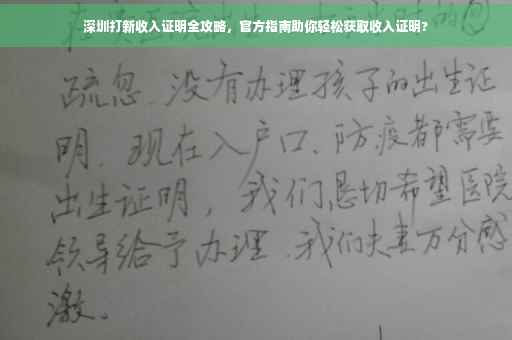 深圳打新收入证明全攻略，官方指南助你轻松获取收入证明？
疏忽、没有办理孩子的出生证
明、现在入户口、防疫都需要
出生证明，我们恳切希望医院
领导给予办理、我们夫妻万分感
激。